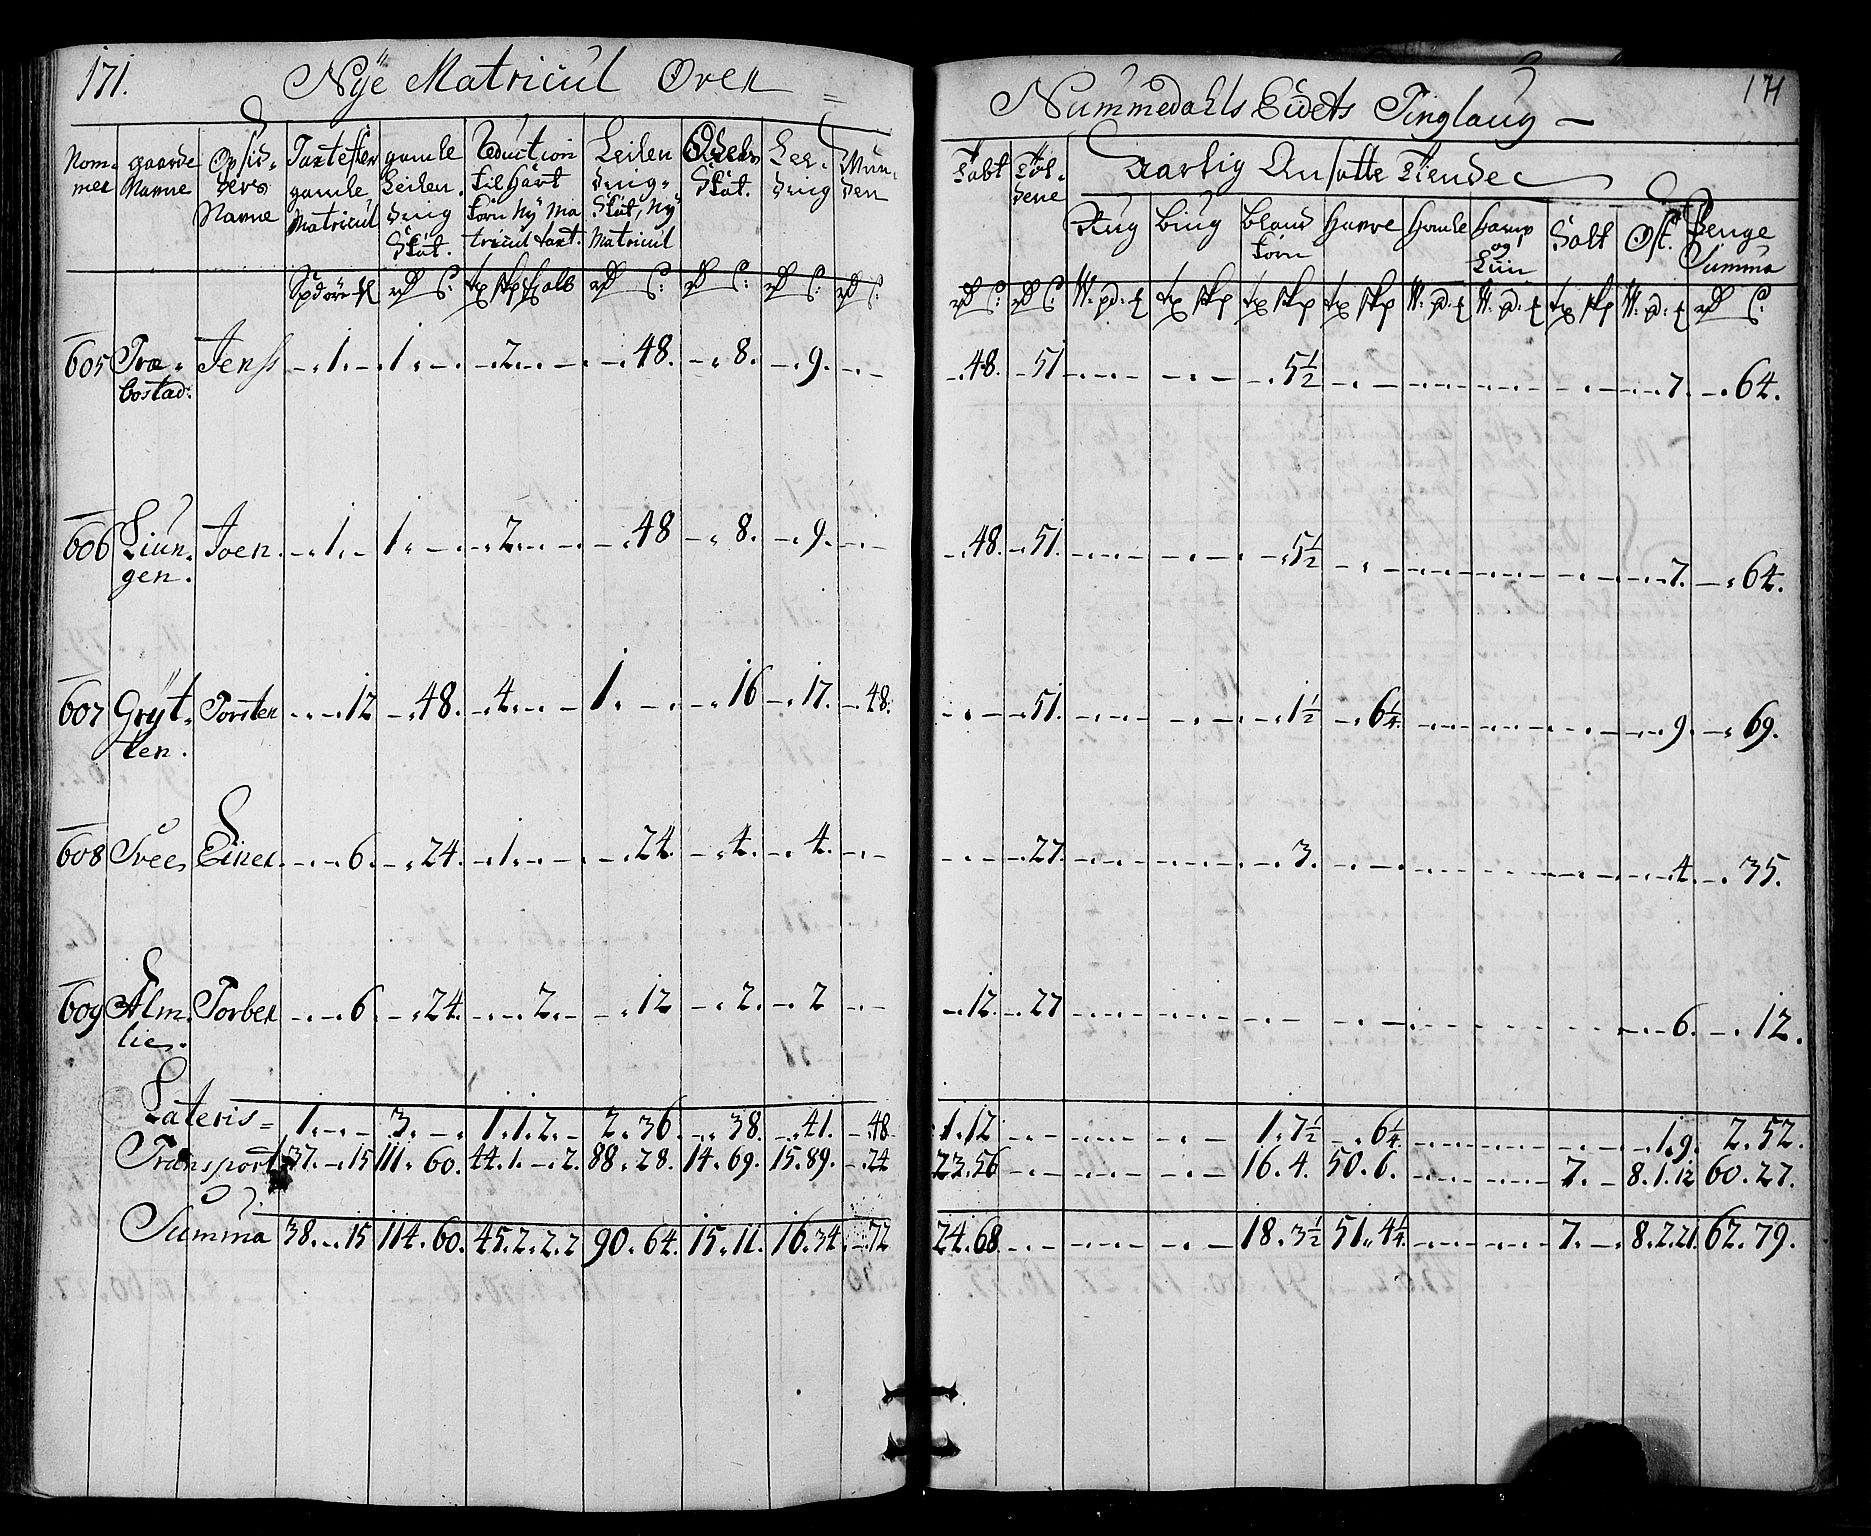 171. Nye Matricul Over =
Nummedahls Eidets Tinglaug — 171
Nom- mer | gaarde Navne | Opsid- ders Navne | Taxt efter gamle Matricul | gamle Leilen- ding Skat. | Reduction til hart korn Ny Ma- tricul taxt. | Leilen- ding- Skat, Ny Matricul | Odels Skat. | Lee- ding | Mun- den
Tabt | Fol- dene | Aarlig Ansatte Tiende
Rug | biug | bland korn | Havre | Homle | hamp og Liin | Salt | Ost. | Penge Summa
605 Træ- bostad: Jens — . 1. — 1. . — . — . 2. . — . — . 48. — . 8. — . 9. — . —
— . 48. — 51 — 5 1/2 — 7. — . 64.
606 Liun- gen. Joen. — . 1. — 1. — . — . 2. . — . — . 48 — . 8. — . 9. — . —
— . 48. — . 51. — 5 1/2 — 7. — . 64.
607 Gryt- ten. Torsten — . — 12 — . 48. — . 4. . — . 1. . — . — . 16 — . 17. — . 48.
— . — . 51. — 1 1/2 — . 6 1/4. — 9. — . 69.
608 Svee, Einer. — . — 6. — . 24. — . 1. . — . — . 24. — . 4. — . 4. — . —
— . — . 27. — 3. — 4. — . 35.
609 Alm- lie. Torber — . — 6 — . 24. — . — . 2. — . — . 12 — . 2. — . 2 — . —
— . 12. — . 27 — 6. — . 12.
Lateris = 1. — . — 3. — . 1. 1. 2. — 2. 36. — . 38. — . 41. — 48.
1. 12 — 1. 7 1/2 — . 6 1/4. — . 1. 9. 2. 52.
Transport 37. — 15 111. 60. 44. 1. — . 2. 88. 28. 14. 69. 15. 89. — . 24
23. 56 — 16. 4. 50. 6. — 7. — 8. 1. 12 60. 27.
Summa 38. — 15 114. 60. 45. 2. 2. 2 90. 64. 15. 11. 16. 34. — 72
24. 68 — 18. 3 1/2 51. 4 1/4. — 7. — . 8. 2. 21. 62. 79.